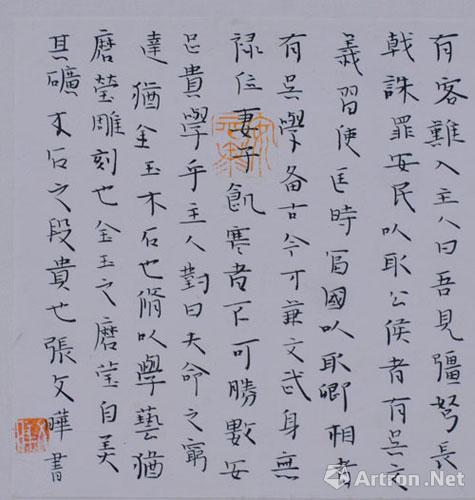 有客難入主人曰吾見彊弩長
戟誅罪安民以取公侯者有矣文
義習使匡時富國以取卿相者
有矣學備古今可兼文武身無
祿位妻子飢寒者不可勝數安
足貴學乎主人對曰夫命之窮
達猶金玉木石也脩以學藝猶
磨瑩雕刻也金玉之磨瑩自美
其礦木石之段貴也張文曄書
Artron.Net